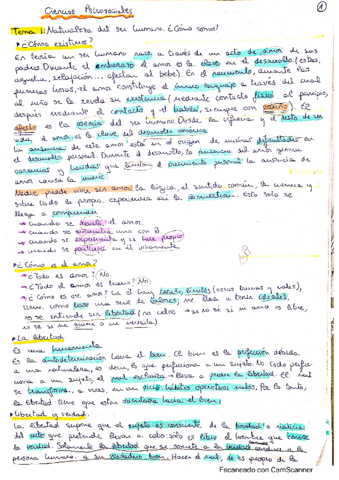 Ciencias Psicosociales
1
Tema 1: Naturaleza del ser humano. ¿Cómo somos?
▸¿Cómo existimos?
En teoría un ser humano nace a través de un acto de amor de sus
padres. Durante el embarazo el amor es la clave en el desarrollo (estrés,
angustia, relajación... afectan al bebé). En el nacimiento, durante las
primeras horas, el amor constituye el único lenguaje a través del cual
al niño se le revela su existencia, mediante contacto físico al principio,
después mediante el contacto y el habla, siempre con cariño. El
afecto es la esencia del ser humano. Desde la infancia y el resto de ser
vida, el amor es la clave del desarrollo armónico
La ausencia de este amor está en el origen de muchas dificultades en
el desarrollo personal. Durante el desarrollo, la ausencia del amor genera
carencias y heridas que limitan el crecimiento personal. La ausencia de
amor causa la muerte.
Nadie puede vivir sin amor, la lógica, el sentido común, la ciencia y
sobre todo la propia experiencia así lo demuestra. Esto solo se
llega a comprender
→ cuando se revela el amor
→ cuando se encuentra uno con él
→ cuando se experimenta y se hace propio
→ cuando se participa en él vivamente
▸¿Cómo es el amor?
→ ¿Todo es amor? No.
→ ¿Todo el amor es bueno? No
→ ¿Cómo es ese amor?
tiene como base una serie de valores, me lleva a tener ideales,
no se entiende sin libertad (no celos → se no es si mi amor es libre,
no sé si me quiere o me necesita)
▸La libertad
Es una herramienta
Es la autodeterminación hacia el bien. El bien es la perfección debida
a una naturaleza, es decir, lo que perfecciona a un sujeto. No todo perfec-
ciona a un sujeto, el mal esclaviza → lleva a perder la libertad. El mal
se transforma, a veces, en un vicio, hábitos operativos malos. Por lo tanto,
la libertad tiene que estar orientada hacia el bien.
▸Libertad y verdad.
La libertad supone que el sujeto es consciente de la bondad o malicia
del acto que pretende llevar a cabo: solo es libre el hombre que conoce
la verdad. Solamente la libertad que se somete a la verdad conduce a la
persona humana a su verdadero bien. Hacer el mal, no es propio de la
Escaneado con CamScanner